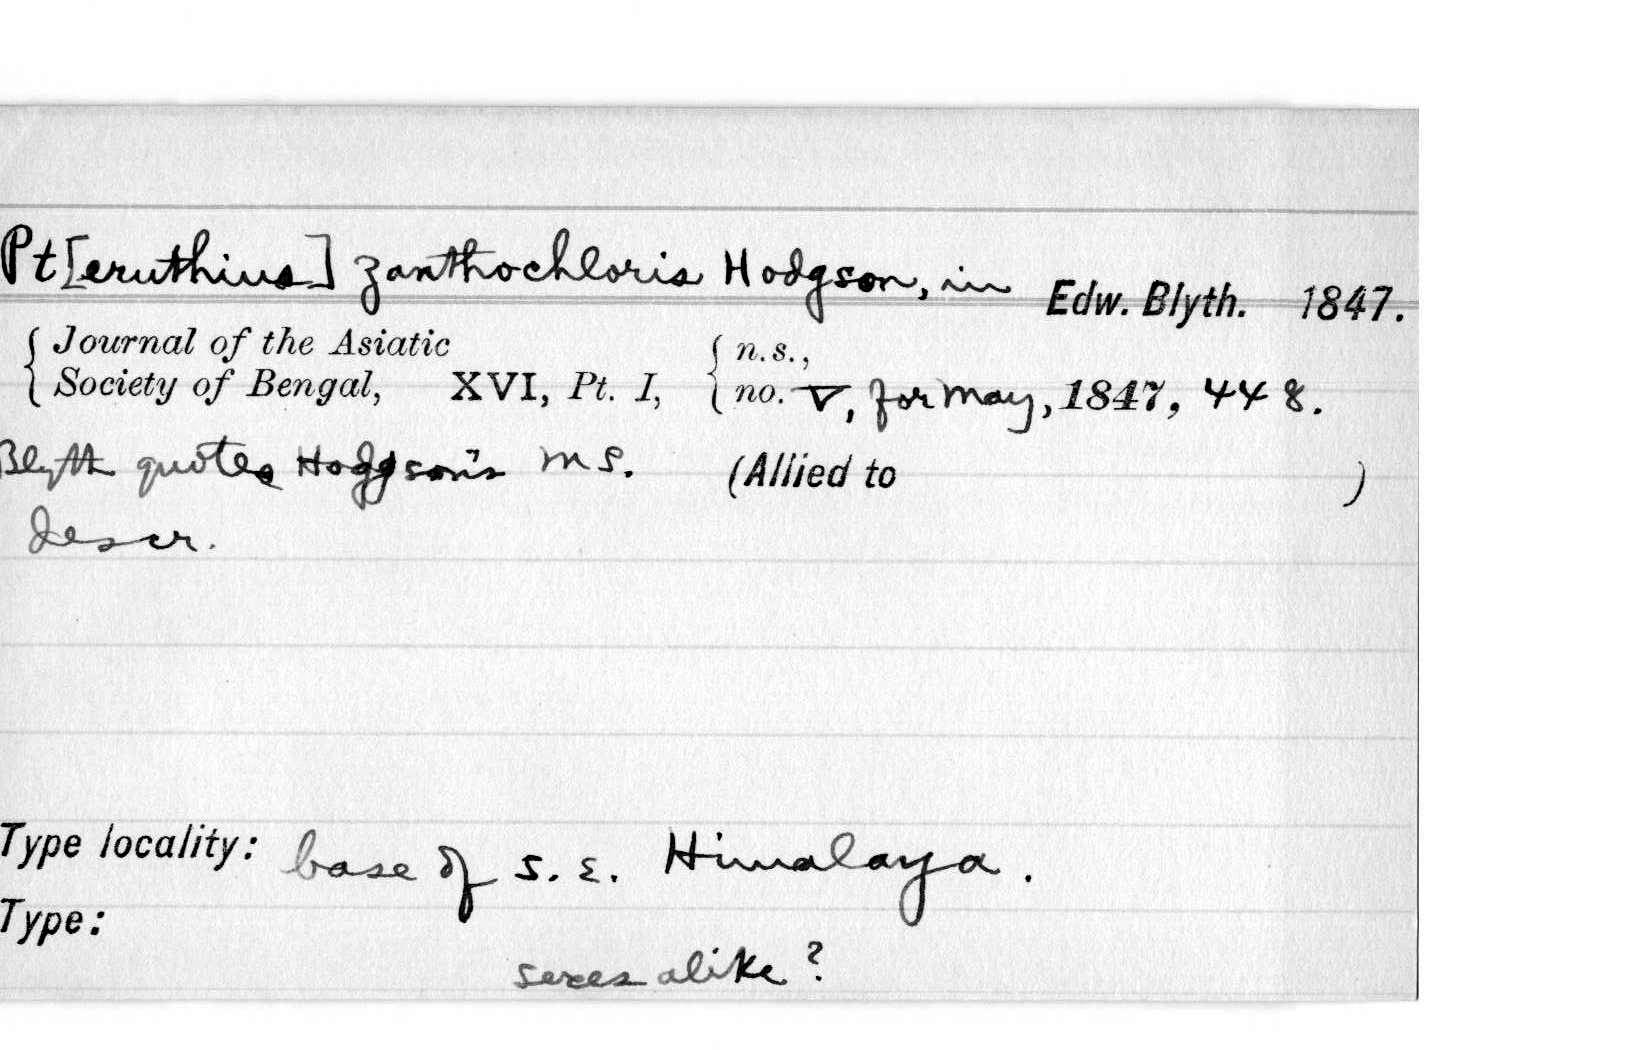 Pt[eruthius] zanthochloris Hodgson, in Edw. Blyth. 1847.
{ Journal of the Asiatic { n.s.,
Society of Bengal, XVI, Pt. I, no. V, for May, 1847, 448.
Blyth quotes Hodgson's MS. (Allied to )
descr.
Type locality: base of S.E. Himalaya.
Type:
sexes alike?